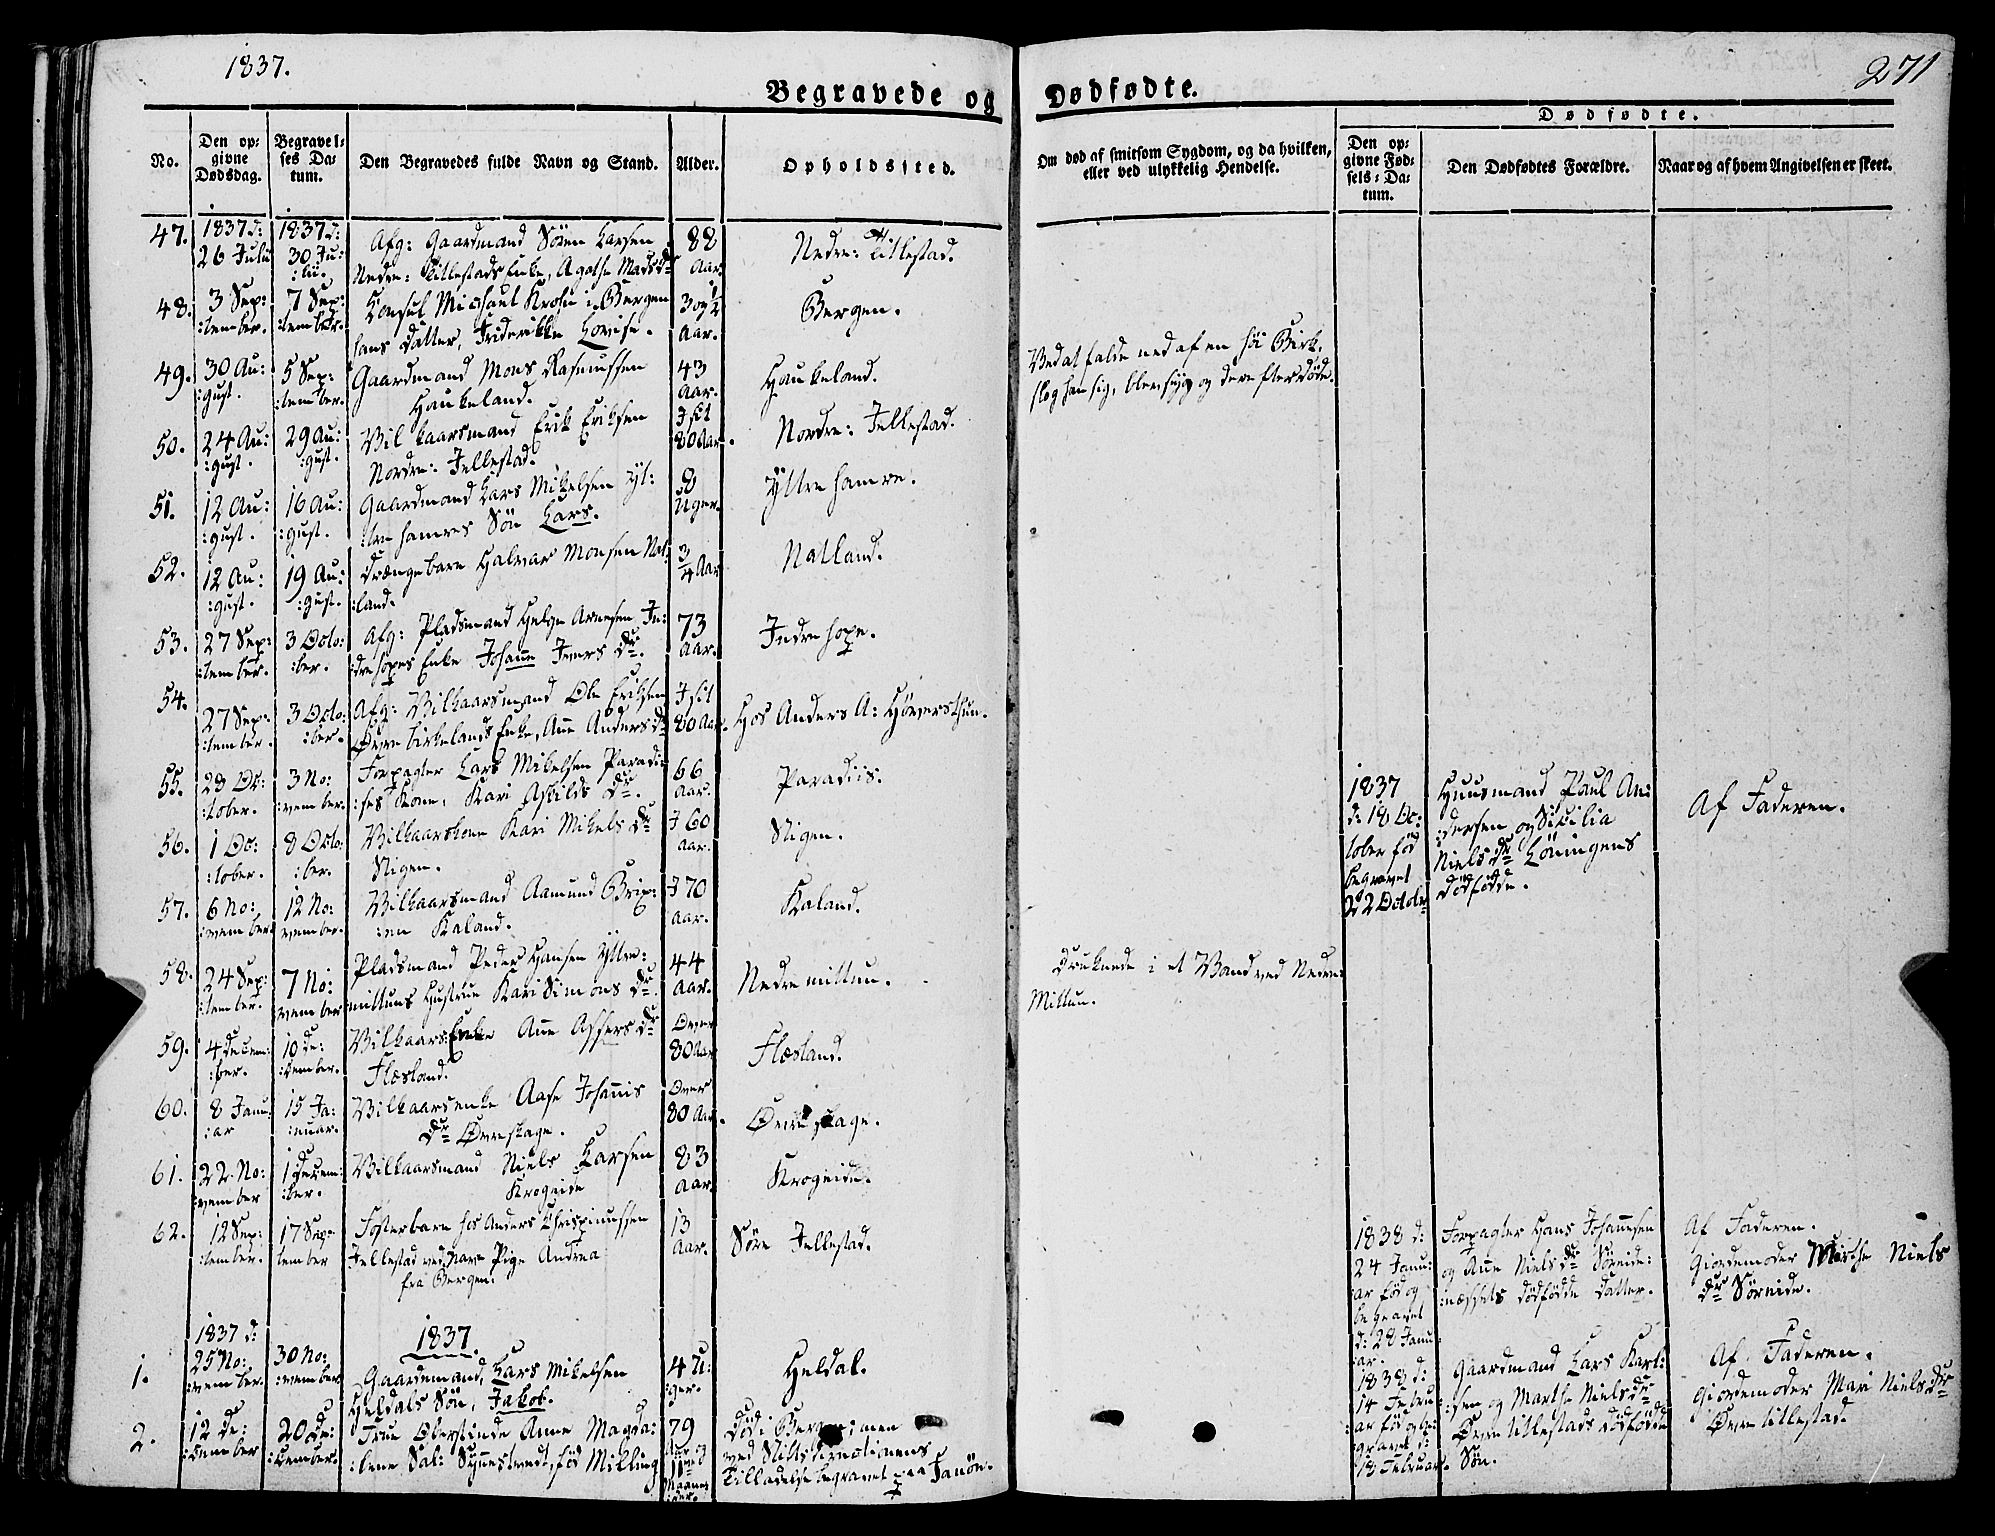 1837.
271
Begravede og Dødfødte.
No.
Den op-
givne
Dødsdag.
Begravel-
ses Da-
tum.
Den Begravedes fulde Navn og Stand.
Alder.
Opholdssted.
Om død af smitsom Sygdom, og da hvilken,
eller ved ulykkelig Hendelse.
Dødfødte.
Den op-
givne Fød-
sels-Da-
tum.
Den Dødfødtes Forældre.
Naar og af hvem Angivelsen er skeet.
47.
1837 d:
26 Julii
1837 d:
30 Ju:
:lii.
Afg: Gaardmand Sören Larsen
Nedre: Tittestads Enke, Agathe Mads Dr
88
Aar.
Nedre: Tittestad.
48.
3 Sep:
:tember.
7 Sep:
:tember.
Consul Michael Krohn i Bergen
hans Datter, Friderikke Lovise.
3 og 1/2
Aar.
Bergen.
49.
30 Au:
:gust.
5 Sep:
:tember.
Gaardmand Mons Rasmussen
Haukeland.
43
Aar.
Haukeland.
Ved at falde ned af en høi Birk,
slog han sig, blev syg og derefter døde.
50.
24 Au:
:gust.
29 Au:
:gust.
Vilkaarsmand Erik Eriksen
Nordre: Jellestad.
80 Aar.
Nordre: Jellestad.
51.
12 Au:
:gust.
16 Au:
:gust.
Gaardmand Lars Mikelsen Yt:
:tre hamres Sön Lars.
8
Uger.
Yttre hamre.
52.
12 Au:
:gust.
19 Au:
:gust.
Drængebarn Halvar Monsen Nat:
:land.
3/4 Aar
Natland.
53.
27 Sep:
:tember.
3 Octo:
:ber.
Afg: Pladsmand Helge Arnesen In:
:drehopes Enke Johanne Ivers Dr.
73
Aar.
Indre hope.
54.
27 Sep:
:tember.
3 Octo:
:ber.
Afg: Vilkaarsmand Ole Eriksen
Øvre birkelands Enke, Anne Anders Dr
80 Aar.
Hos Anders A: Höversthun.
55.
28 Oc:
:tober.
3 No:
:vember.
Forpagter Lars Mikelsen Paradi:
:ses Kone, Kari Askilds Dr.
66
Aar.
Paradiis.
1837
d: 18 Oc:
tober fød
begravet
22 Octobr
Huusmand Paul An:
:dersen og Sicilia
Niels Dr Löningens
Dödfödde.
Af Faderen.
56.
1 Oc:
:tober.
8 Octo:
:ber.
Vilkaarskone Kari Mikels Dr
Stigen.
60
Aar.
Stigen.
57.
6 No:
:vember
12 No:
vember.
Vilkaarsmand Aamund Brix:
:en Kaland.
70
Aar.
Kaland.
58.
24 Sep:
:tember.
7 No:
vember
Pladsmand Peder Hansen Yttre:
mittuns Hustrue Kari Simons Dr.
44
Aar.
Nedre mittun.
Druknede i et Vand ved Nedre:
Mittun.
59.
4 Decem:
:ber.
10 De:
:cember.
Vilkaars: Enke Anne Assers Dr
Flæsland.
Over
80 Aar
Flæsland.
60.
8 Janu:
:ar
15 Ja:
:nuar.
Vilkaarsenke Aase Johannis
Dr Øvreskage.
Over
80 Aar.
Øvre skage.
61.
22 No:
:vember
1 Decem:
:ber.
Vilkaarsmand Niels Larsen
Krogeide
83
Aar.
Krogeide.
62.
12 Sep:
:tember.
17 Sep:
tember
Fosterbarn hos Anders Chrispinussen
Jellestad ved Navn Pige Andrea
fra Bergen.
13
Aar.
Söre Jellestad.
1838 d:
24 Janu:
:ar fød og
begravet
d: 28 Janu:
:ar.
Forpagter Hans Johannesen
og Anne Niels Dr Söreide:
:næssets dödfödde Datter.
Af Faderen.
Giordemoder Marthe Niels
Dr Söreide.
1837.
1.
1837 d:
25 No:
:vember.
30 No:
:vember
Gaardemand Lars Mikelsen
Heldals Sön, Jakob.
4 U:
:ger.
Heldal.
1838 d:
14 Febru:
:ar fød og be:
:gravet d:
18 Februar.
Gaardmand Lars Karl:
:sen og Marthe Niels Dr
Øvre tittestads dödfödde
Sön.
Af Faderen.
Giordemoder Mari Niels Dr
Øvre tittestad.
2.
12 De:
:cember
20 De:
:cember.
Frue Oberstinde Anne Magda:
:lene Sal: Synnestvedt, fød Milling
79
Aar og
11
Maane
:der.
Död i Bergen; men
ved Stiftsdirectionens
Tilladelse begravet paa Fanöe.